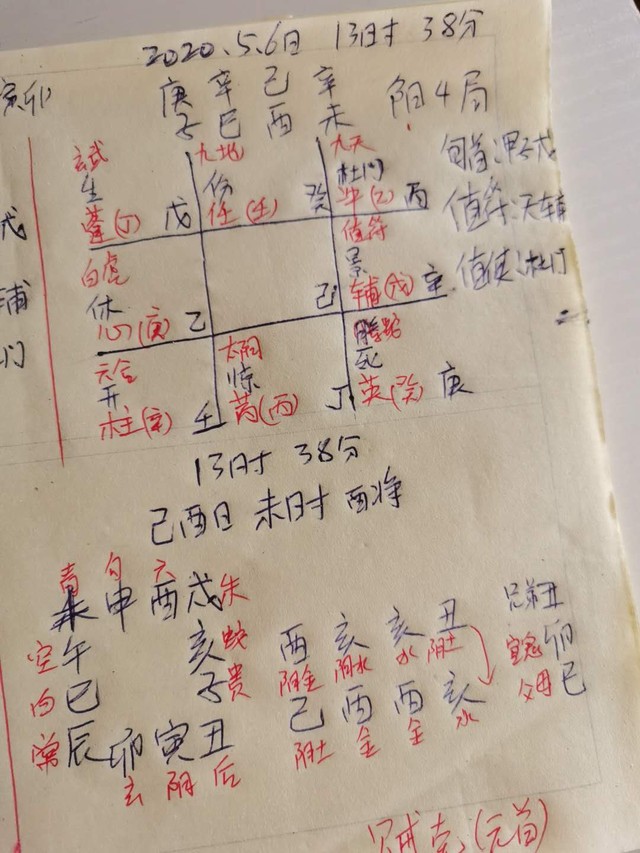 2020.5.6日 13时38分
寅卯 庚 辛 己 辛
子 巳 酉 未 阳4局
玄武 九地 九天 旬首:甲子戊
生 杜门
蓬(丁) 戊 任(壬) 癸 冲(乙) 丙 值符:天辅
戊
白虎 值符
休 景 值使:杜门
辅
心(庚) 乙 己 辅(戊) 辛
门
六合 太阴 螣蛇
开 惊 死
柱(辛) 壬 芮(丙) 丁 英(癸) 庚
13时38分
己酉日 未时 酉将
青 勾 六
未 申 酉 戌 朱
空 午 亥 蛇 酉 亥 亥 丑 兄弟丑
阴金 阴水 水 阴土 官鬼卯
巳 子 贵 己 酉 酉 亥 父母巳
常 辰 卯 寅 丑 阴土 金 金 水
玄 阴 后
(元首)